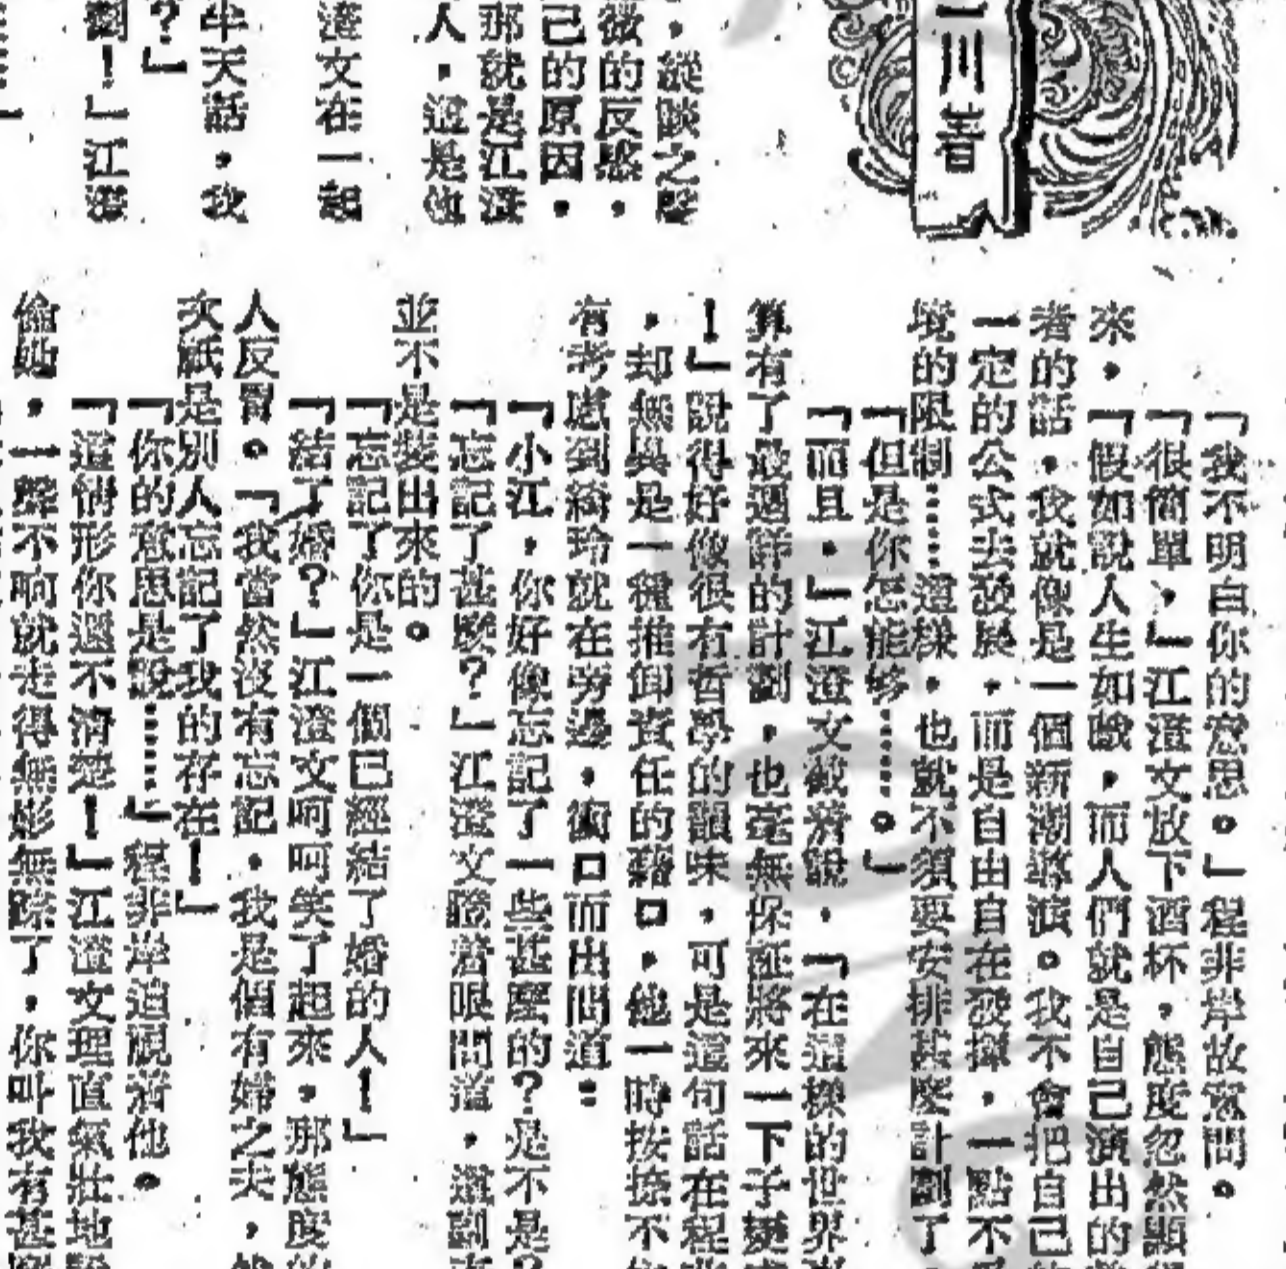 一川著
，縱談之
微的反感，
己的原因，
那就是江澄
人，這是他
澄文在一起
半天話，我
？」
劃！」江澄
「我不明白你的意思。」程非岸故意問。
「很簡單，」江澄文放下酒杯，態度忽然顯
來，「假如說人生如戲，而人們就是自己演出的
者的話，我就像是一個新潮導演。我不會把自己
一定的公式去發展，而是自由自在發揮，一點不
境的限制……這樣，也就不須要安排甚麼計劃了
「但是你怎能够……。」
「而且，」江澄文截着說，「在這樣的世界
算有了最週詳的計劃，也毫無保証將來一下子變
！」說得好像很有哲學的韻味，可是這句話在程
，却無異是一種推卸責任的藉口，他一時按捺不
有考慮到綺玲就在旁邊，衝口而出問道：
「小江，你好像忘記了一些甚麼的？是不是？
「忘記了甚麼？」江澄文瞪着眼問道，這副
並不是裝出來的。
「忘記了你是一個已經結了婚的人！」
「結了婚？」江澄文呵呵笑了起來，那態度
人反胃。「我當然沒有忘記，我是個有婦之夫，
次祇是別人忘記了我的存在！」
「你的意思是說……」程非岸迫視着他。
「這情形你還不清楚！」江澄文理直氣壯地
偷跕，一聲不响就走得無影無踪了，你叫我有甚麼